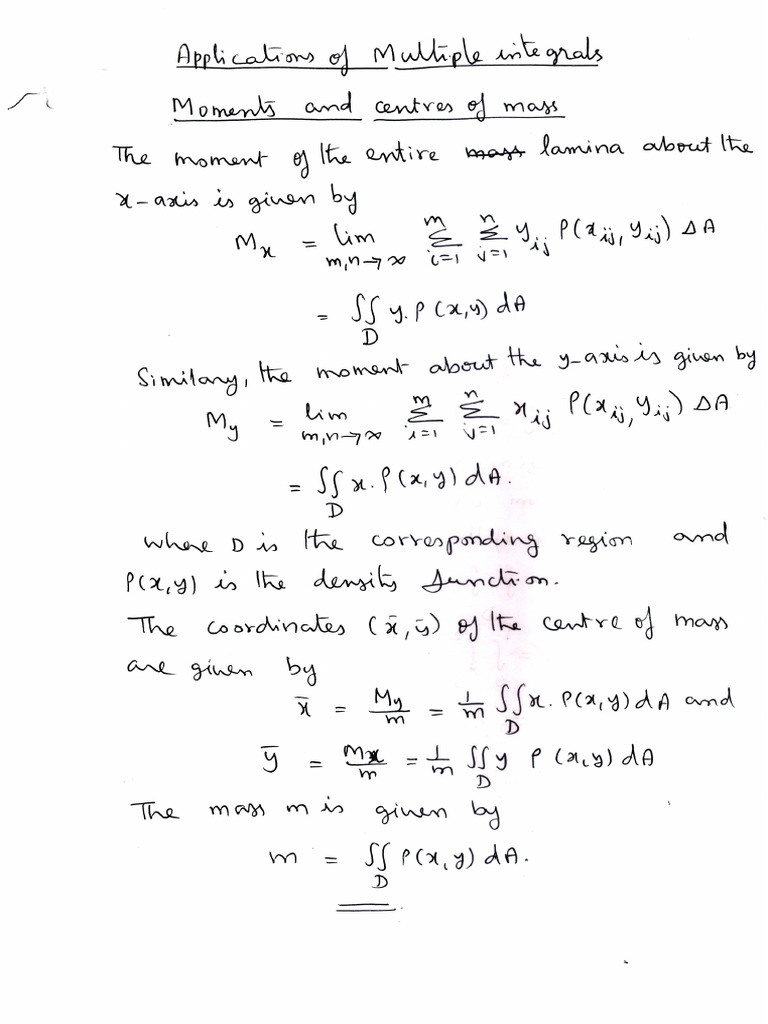 Applications of Multiple integrals
Moments and centres of mass
The moment of the entire ~~mass~~ lamina about the
x-axis is given by
M_x = lim_{m,n→∞} Σ_{i=1}^{m} Σ_{j=1}^{n} y_{ij} ρ(x_{ij}, y_{ij}) ΔA
= ∬_D y. ρ(x,y) dA
Similary, the moment about the y-axis is given by
M_y = lim_{m,n→∞} Σ_{i=1}^{m} Σ_{j=1}^{n} x_{ij} ρ(x_{ij}, y_{ij}) ΔA
= ∬_D x. ρ(x,y) dA.
where D is the corresponding region and
ρ(x,y) is the density function.
The coordinates (x̄, ȳ) of the centre of mass
are given by
x̄ = M_y/m = 1/m ∬_D x. ρ(x,y) dA and
ȳ = M_x/m = 1/m ∬_D y ρ(x,y) dA
The mass m is given by
m = ∬_D ρ(x,y) dA.